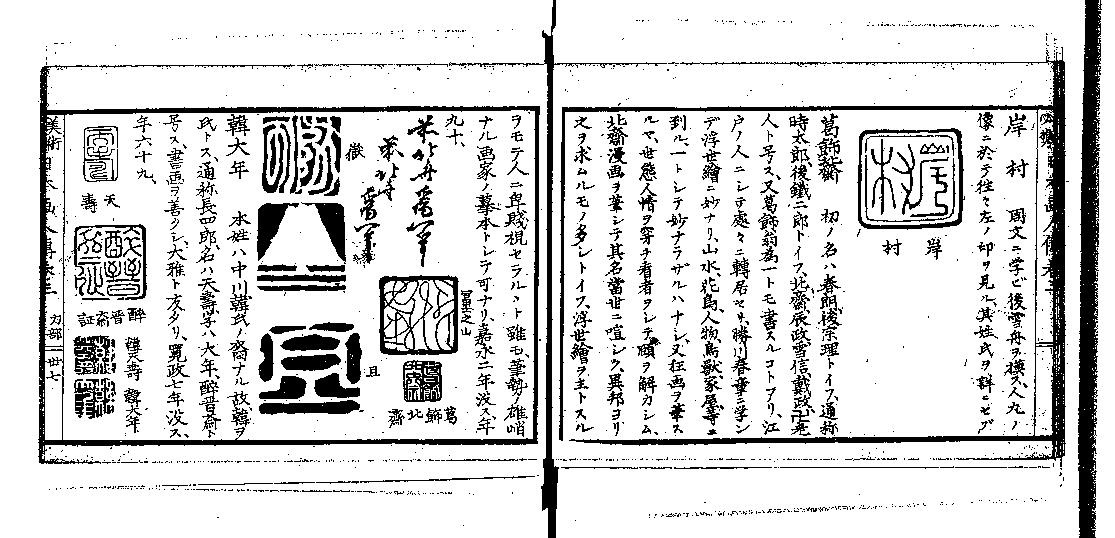 岸村　周文ニ学ビ後雪舟ヲ模ス、人丸ノ
像ニ於テ往々左ノ印ヲ見ル、其姓氏ヲ詳ニセズ
岸村
葛飾北齋　初ノ名ハ春朗、後宗理トイフ、通称
時太郎、後鐵二郎トイフ、北齋辰政雷信戴斗為一老
人ト号ス、又葛飾翁為一トモ書スルコトアリ、江
戸ノ人ニシテ處々ニ轉居セリ、勝川春章ニ学ン
デ浮世繪ニ妙ナリ、山水、花鳥、人物、鳥獸、家屋等ニ
到ル、一トシテ妙ナラザルハナシ、又狂画ヲ筆ス
ルヤ、世態人情ヲ穿チ看者ヲシテ頤ヲ解カシム、
北齋漫画ヲ筆シテ其名當世ニ喧シク、異邦ヨリ
之ヲ求ムルモノ多シトイフ、浮世繪ヲ主トスル
ヲモテ人ニ卑賤視セラルヽト雖モ筆勢ノ雄峭
ナル画家ノ摹本トシテ可ナリ、嘉永二年没ス、年
九十、
冨之山
葛飾北齋
嶽
且
韓大年　本姓ハ中川韓氏ノ裔ナル故韓ヲ
氏トス、通称長四郎、名ハ天壽、字ハ大年、醉晋斎ト
号ス、書画ヲ善クシ、大雅ト友タリ、寛政七年没ス、
年六十九、
天壽
醉晋斎証
韓天壽
韓大年
力部
廿七